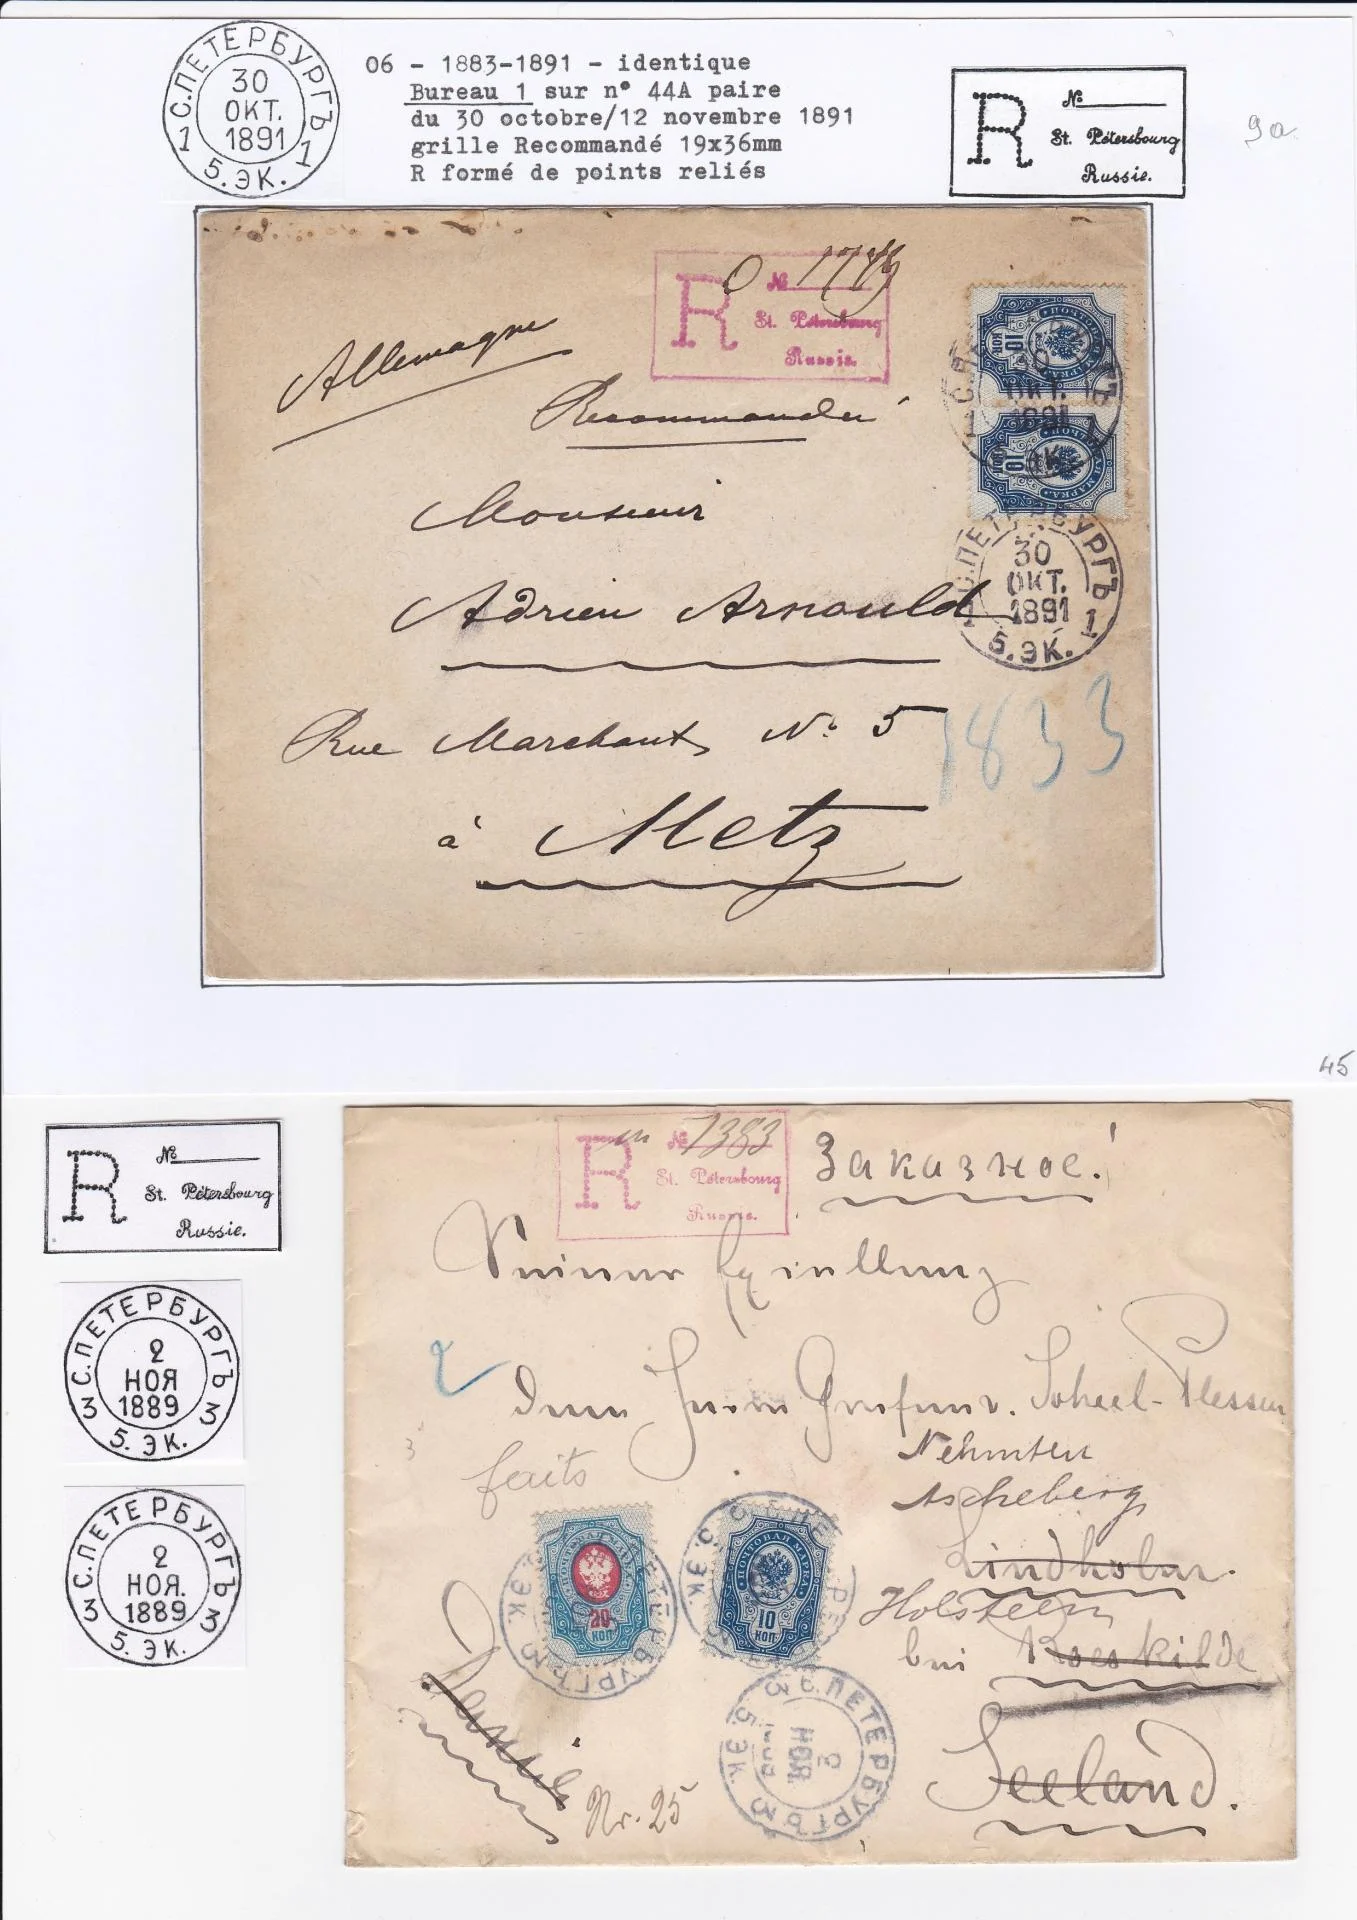 С.ПЕТЕРБУРГЪ
30
ОКТ.
1891
1 5.ЭК. 1
06 - 1883-1891 - identique
Bureau 1 sur n° 44A paire
du 30 octobre/12 novembre 1891
grille Recommandé 19x36mm
R formé de points reliés
R
№
St. Pétersbourg
Russie.
9a.
R
№
St. Pétersbourg
Russie.
Allemagne
Recommandé
Monsieur
Adrien Arnould
Rue Marchant, No. 5
à Metz
1833
10
КОП
10
КОП
ПОЧТОВАЯ МАРКА
ОКТ.
1891
С.ПЕТЕРБУРГЪ
30
ОКТ.
1891
1 5.ЭК. 1
45
R
№
St. Pétersbourg
Russie.
С.ПЕТЕРБУРГЪ
2
НОЯ
1889
3 5.ЭК. 3
С.ПЕТЕРБУРГЪ
2
НОЯ.
1889
3 5.ЭК. 3
R
№ 7383
St. Pétersbourg
Russie.
Заказное!
Scheel-Plessen
Nehmten
Ascheberg
Lindholm.
Holstein
bei Roeskilde
Seeland.
faits
20
КОП
ПОЧТОВАЯ МАРКА
10
КОП
С.ПЕТЕРБУРГЪ
НОЯ.
3 5.ЭК. 3
Nr. 25